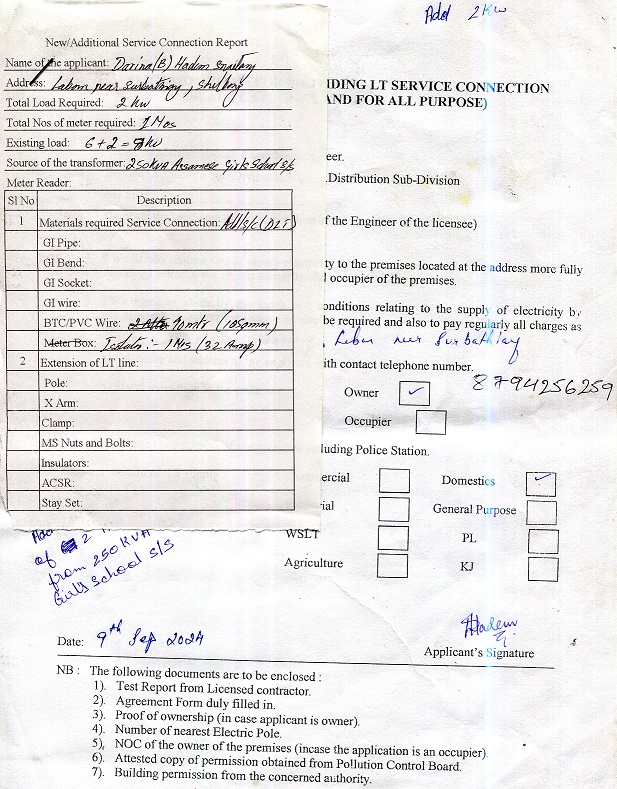 Add 2 kw
New/Additional Service Connection Report
Name of the applicant: Darina (B) Hadem
Address: Labam near Surbathiay, Shillong
Total Load Required: 2 kw
Total Nos of meter required: 1 Nos
Existing load: 6 + 2 = 8 kw
Source of the transformer: 250KVA Assamese Girls School S/S
Meter Reader:
Sl No Description
1 Materials required Service Connection: Add/S/C (D2T)
GI Pipe:
GI Bend:
GI Socket:
GI wire:
BTC/PVC Wire: 90mtr (10sqmm)
Meter Box: Isolator :- 1 Nos (32 Amp)
2 Extension of LT line:
Pole:
X Arm:
Clamp:
MS Nuts and Bolts:
Insulators:
ACSR:
Stay Set:
IDING LT SERVICE CONNECTION
AND FOR ALL PURPOSE)
eer.
.Distribution Sub-Division
f the Engineer of the licensee)
ty to the premises located at the address more fully
l occupier of the premises.
onditions relating to the supply of electricity by
be required and also to pay regularly all charges as
, Laban near Surbathiay
ith contact telephone number.
8794256259
Owner
Occupier
luding Police Station.
ercial Domestics
ial General Purpose
WSLT PL
Agriculture KJ
Add
of 2
from 250 KVA
Girl's School S/S
Date: 9th Sep 2024
Hadem
Applicant's Signature
NB : The following documents are to be enclosed :
1). Test Report from Licensed contractor.
2). Agreement Form duly filled in.
3). Proof of ownership (in case applicant is owner).
4). Number of nearest Electric Pole.
5), NOC of the owner of the premises (incase the application is an occupier)
6). Attested copy of permission obtained from Pollution Control Board.
7). Building permission from the concerned authority.